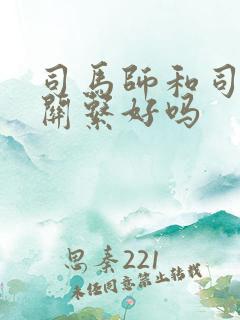 司馬師和司
關繫好吗
思秦221
未经同意禁止转载